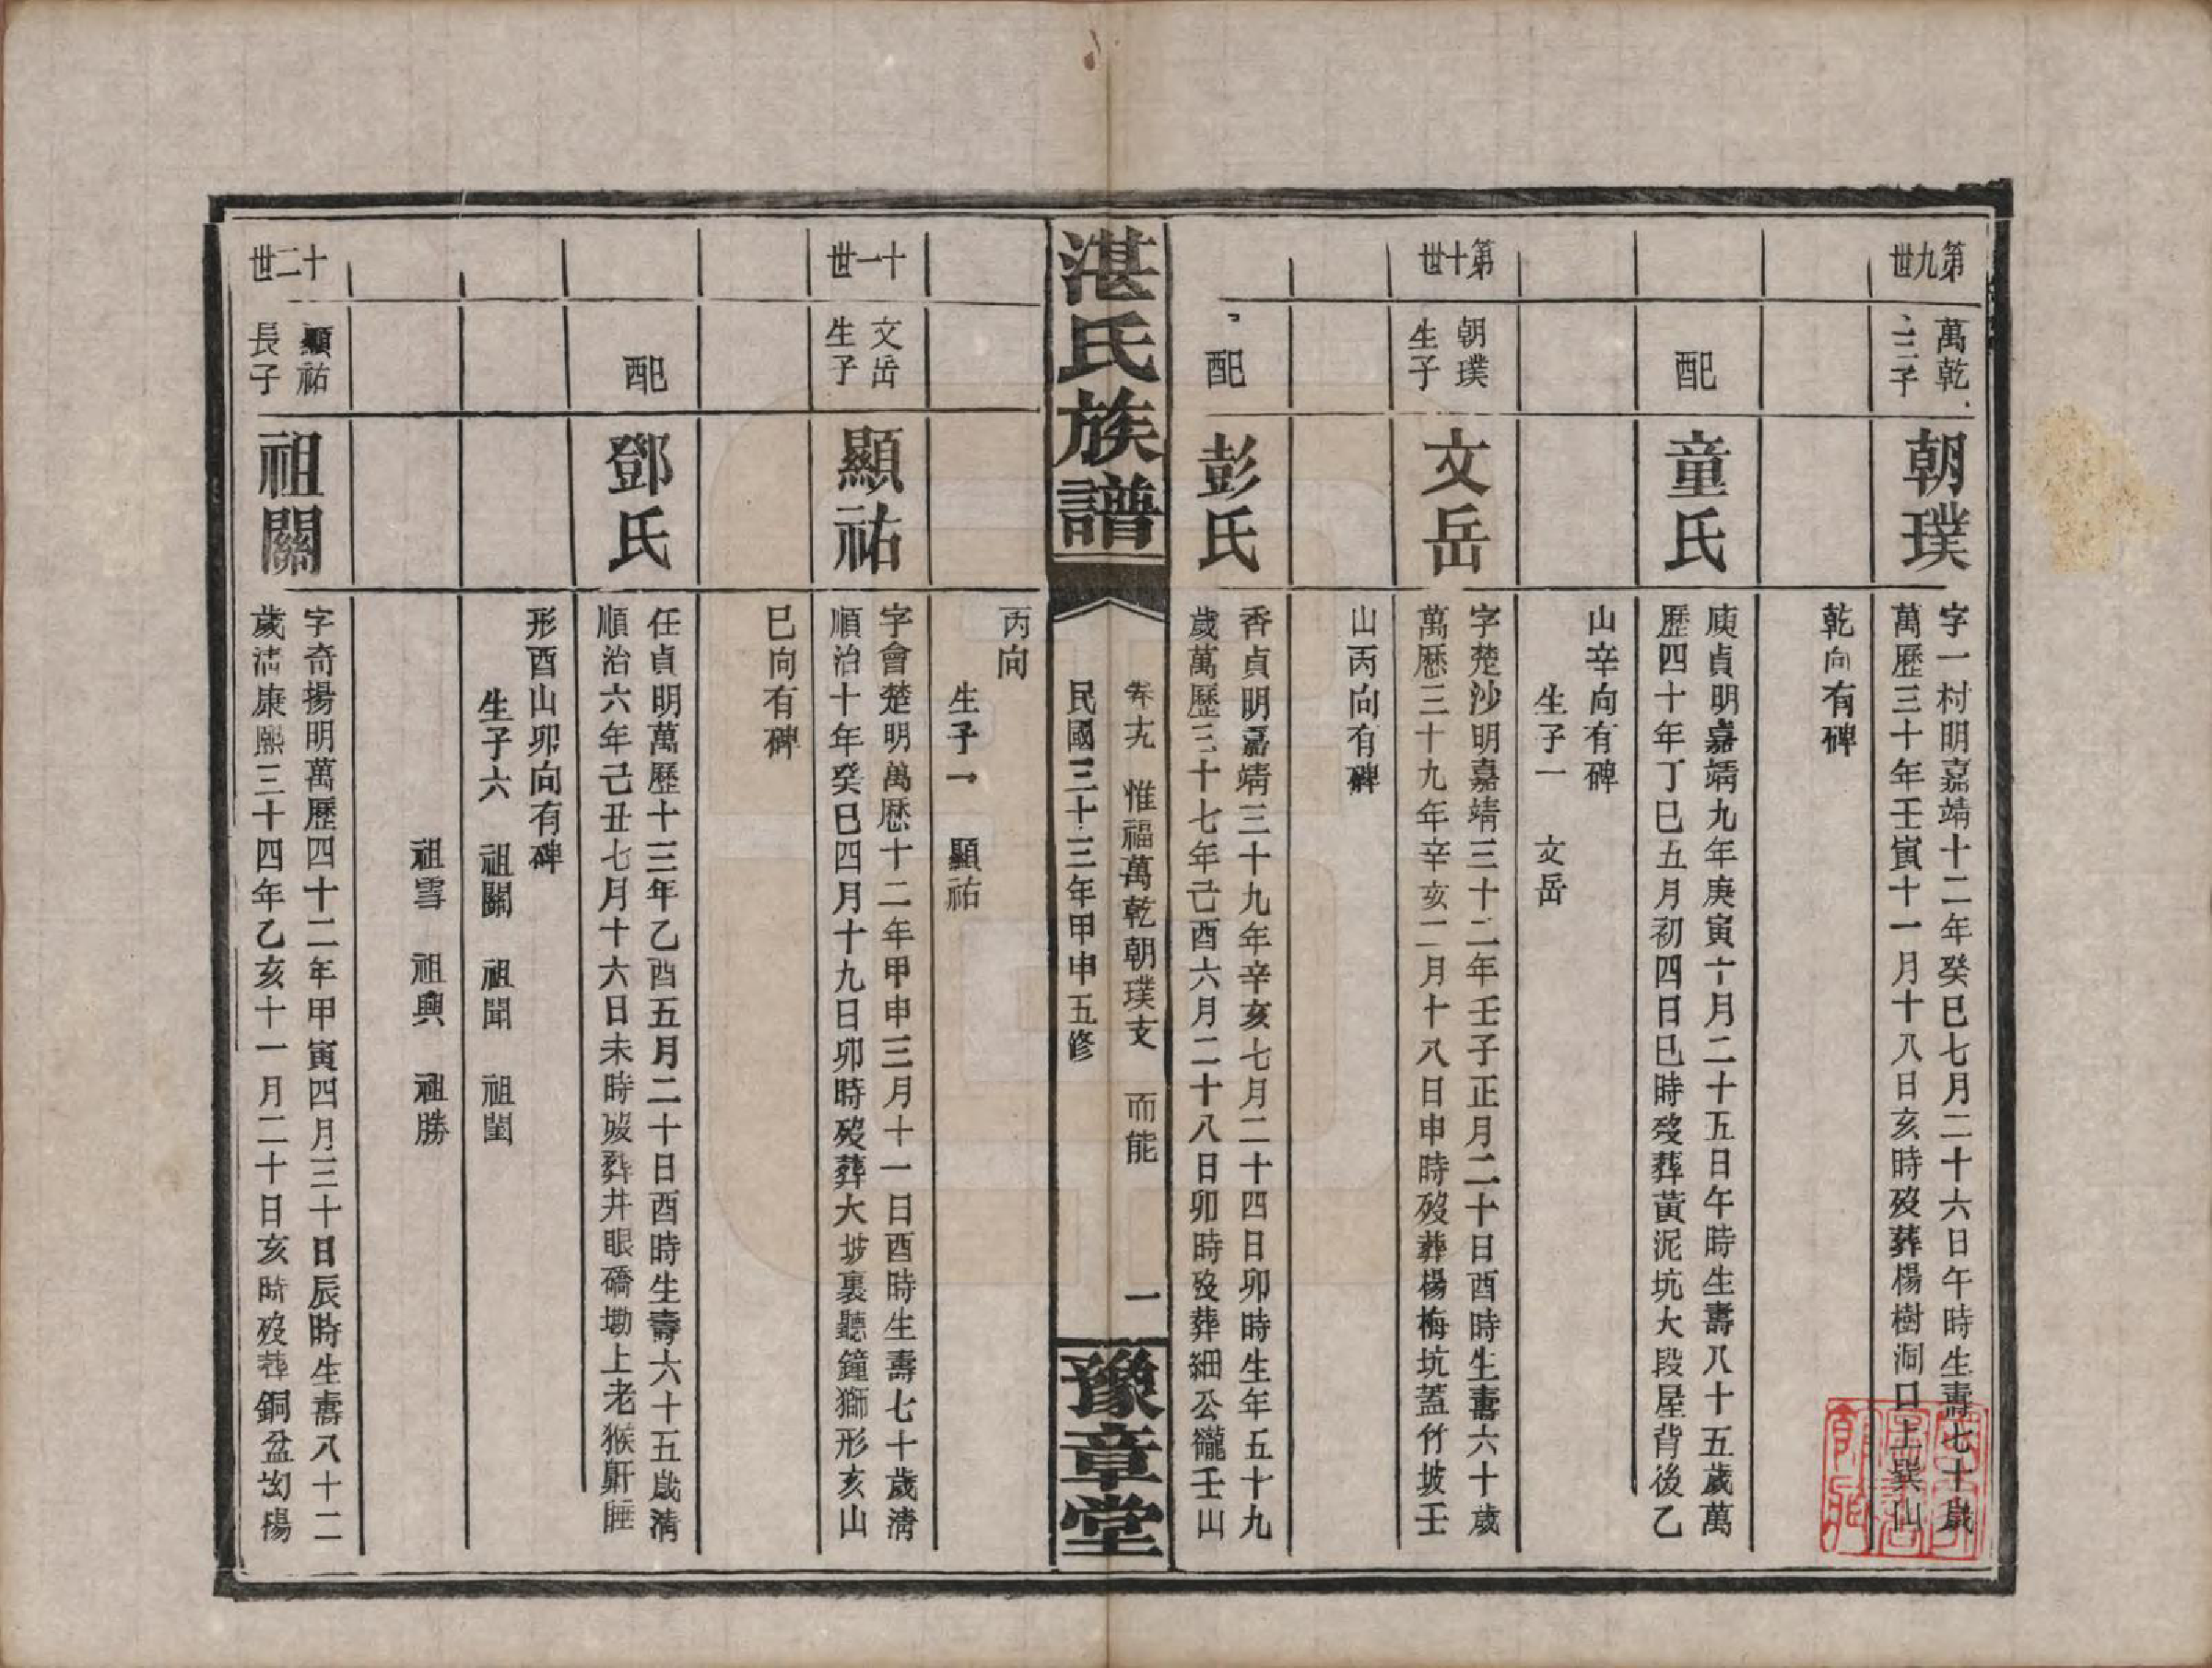 第九世
萬乾
三子
朝璞
字一村明嘉靖十二年癸巳七月二十六日午時生壽七十歲
萬歷三十年壬寅十一月十八日亥時歿葬楊樹洞口上巽山
乾向有碑
配
童氏
庚貞明嘉靖九年庚寅十月二十五日午時生壽八十五歲萬
歷四十年丁巳五月初四日巳時歿葬黃泥坑大段屋背後乙
山辛向有碑
生子一 文岳
第十世
朝璞
生子
文岳
字楚沙明嘉靖三十二年壬子正月二十日酉時生壽六十歲
萬歷三十九年辛亥二月十八日申時歿葬楊梅坑蓋竹坡壬
山丙向有碑
配
彭氏
香貞明嘉靖三十九年辛亥七月二十四日卯時生年五十九
歲萬歷三十七年己酉六月二十八日卯時歿葬細公徿壬山
湛氏族譜
卷十九 惟福萬乾朝璞支 而能 一
民國三十三年甲申五修
豫章堂
丙向
生子一 顯祐
十一世
文岳
生子
顯祐
字會楚明萬歷十二年甲申三月十一日酉時生壽七十歲清
順治十年癸巳四月十九日卯時歿葬大坡裏聽鐘獅形亥山
巳向有碑
配
鄧氏
任貞明萬歷十三年乙酉五月二十日酉時生壽六十五歲清
順治六年己丑七月十六日未時歿葬井眼礄墈上老猴鼾睡
形酉山卯向有碑
生子六 祖關 祖聞 祖閏
祖雪 祖興 祖勝
十二世
顯祐
長子
祖關
字奇揚明萬歷四十二年甲寅四月三十日辰時生壽八十二
歲清康熙三十四年乙亥十一月二十日亥時歿葬銅盆坳楊